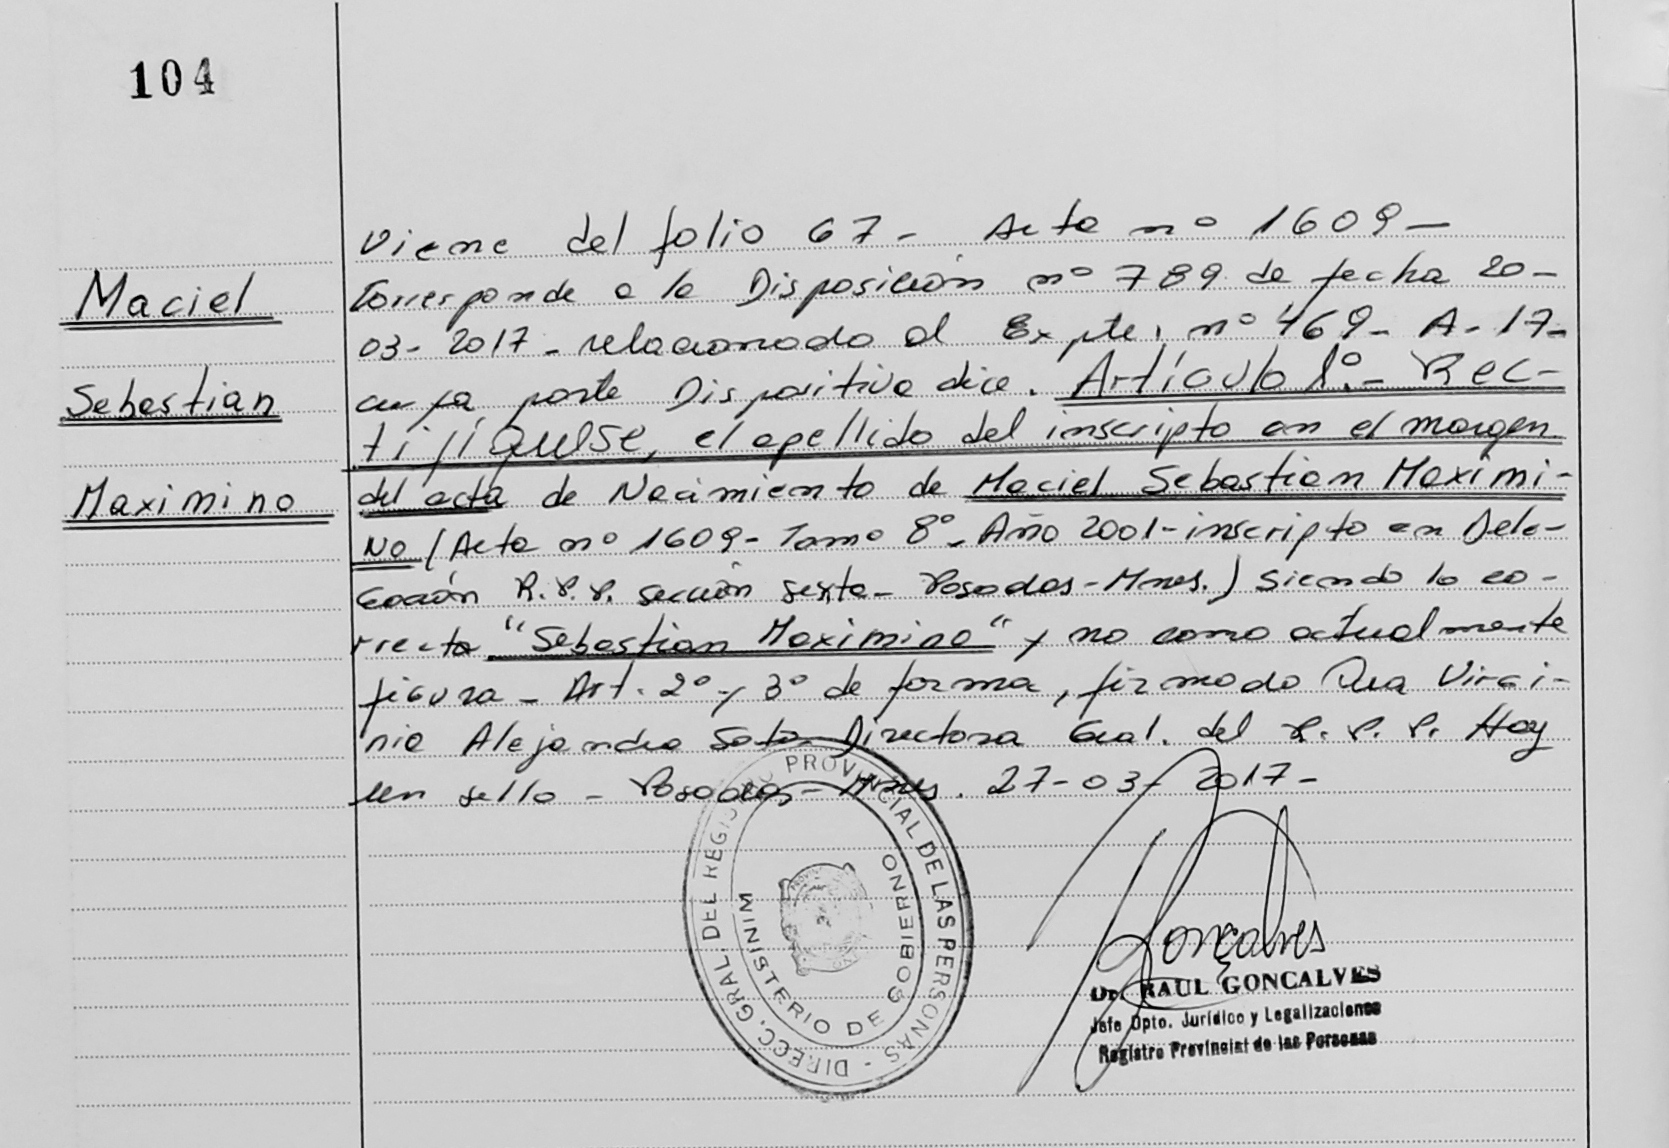 104
Maciel
Sebastian
Maximino
Viene del folio 67- Acta nº 1609-
Corresponde a la Disposición nº 789 de fecha 20-
03-2017- relacionado al Expte, nº 469- A-17-
cuya parte Dispositiva dice. Artículo 1º.- Rec-
tifiquese, el apellido del inscripto en el margen
del acta de Nacimiento de Maciel Sebastian Maximi-
No (Acta nº 1609- Tomo 8º- Año 2001- inscripto en Dele-
gación R.P.P. sección sexta- Posadas-Mnes.) siendo lo co-
rrecto "Sebastian Maximino" y no como actualmente
figura- Art. 2º y 3º de forma, firmado Dra Virgi-
nia Alejandra Soto Directora Gral. del R.P.P. Hay
un sello- Posadas- Mnes. 27-03-2017-
DIRECC. GRAL. DEL REGISTRO PROVINCIAL DE LAS PERSONAS -
MINISTERIO DE GOBIERNO
Goncalves
Dr. RAUL GONCALVES
Jefe Dpto. Jurídico y Legalizaciones
Registro Provincial de las Personas